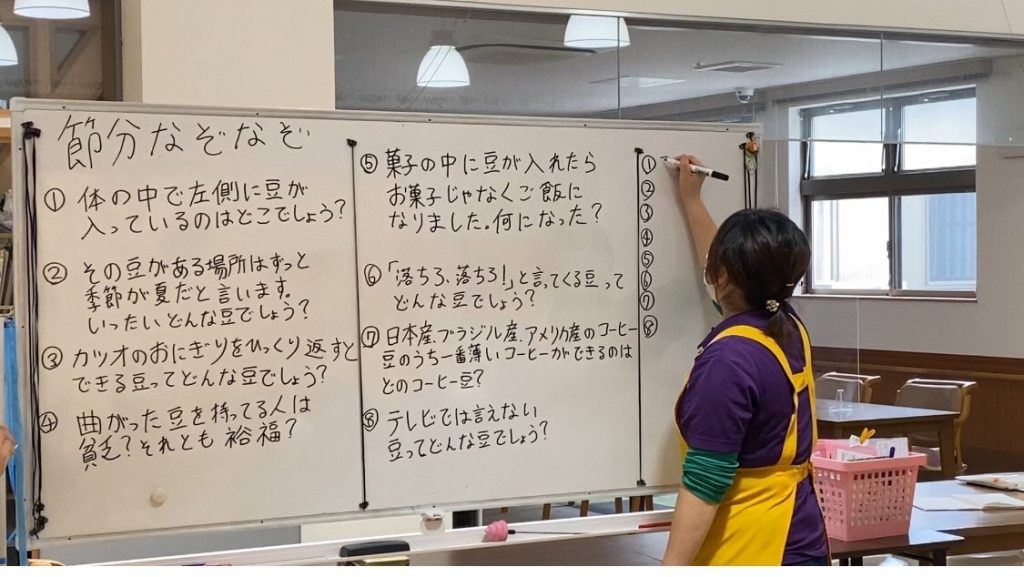 節分なぞなぞ
① 体の中で左側に豆が
入っているのはどこでしょう?
② その豆がある場所はずっと
季節が夏だと言います。
いったいどんな豆でしょう?
③ カツオのおにぎりをひっくり返すと
できる豆ってどんな豆でしょう?
④ 曲がった豆を持ってる人は
貧乏?それとも裕福?
⑤ 菓子の中に豆が入れたら
お菓子じゃなくご飯に
なりました。何になった?
⑥ 「落ちろ、落ちろ!」と言ってくる豆って
どんな豆でしょう?
⑦ 日本産、ブラジル産、アメリカ産のコーヒー
豆のうち一番薄いコーヒーができるのは
どのコーヒー豆?
⑧ テレビでは言えない
豆ってどんな豆でしょう?
①
②
③
④
⑤
⑥
⑦
⑧